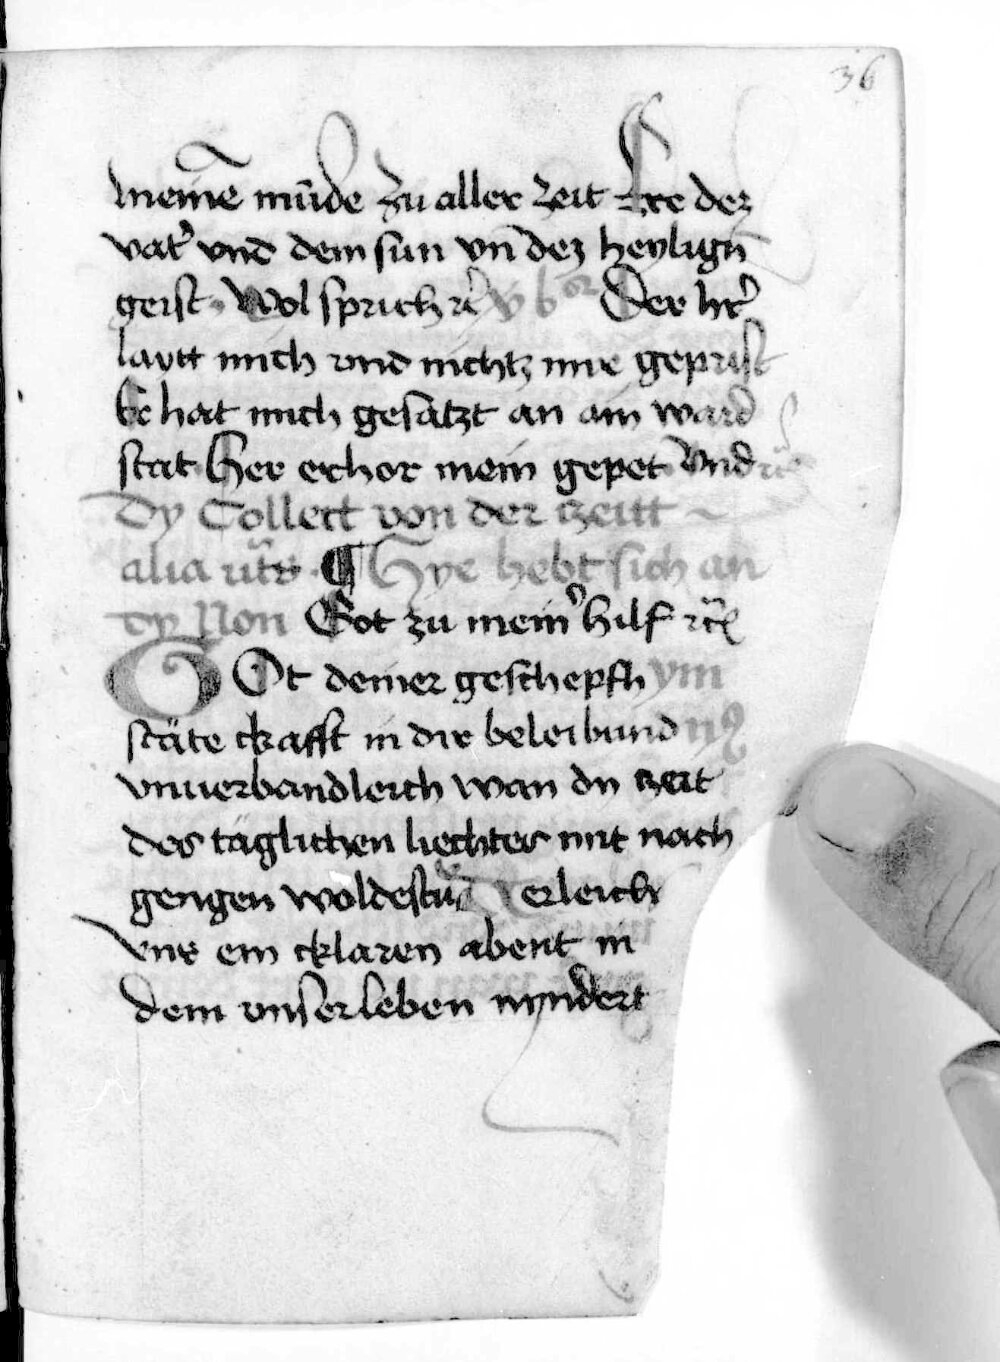 36
meinē mūde zu aller zeit Ere dez
vat' vnd dem sun vn̄ dez heylign̄
geist. Wol sprich rc̄ v̄b Der hr̄
laytt mich vnd nichtz mir geprist
Er hat mich gesätzt an ain ward
stat Her erhor mein gepet Vnd rc̄
Dy Collect von der tzeitt
alia ut sͣ ¶ Hye hebt sich an
dy Non Got zu mein' hilf rc̄
GOt deiner geschepfh ym
stäte ckafft in dir beleibund nꝯ
vnuerbandleich wan dy tzeit
des täglichen liechtes mit nach
gengen woldestu Verleich
vns ein cklaren abent in
dem vnser leben nyndert